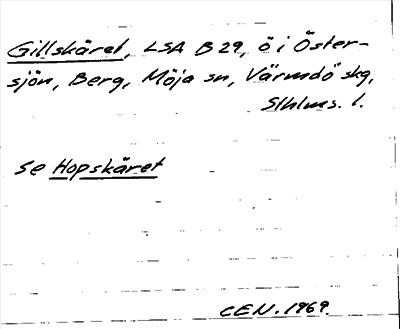 Gillskäret, LSA B 29, ö i Öster-
sjön, Berg, Möja sn, Värmdö skg,
Sthlms. l.
se Hopskäret
CEN. 1969.